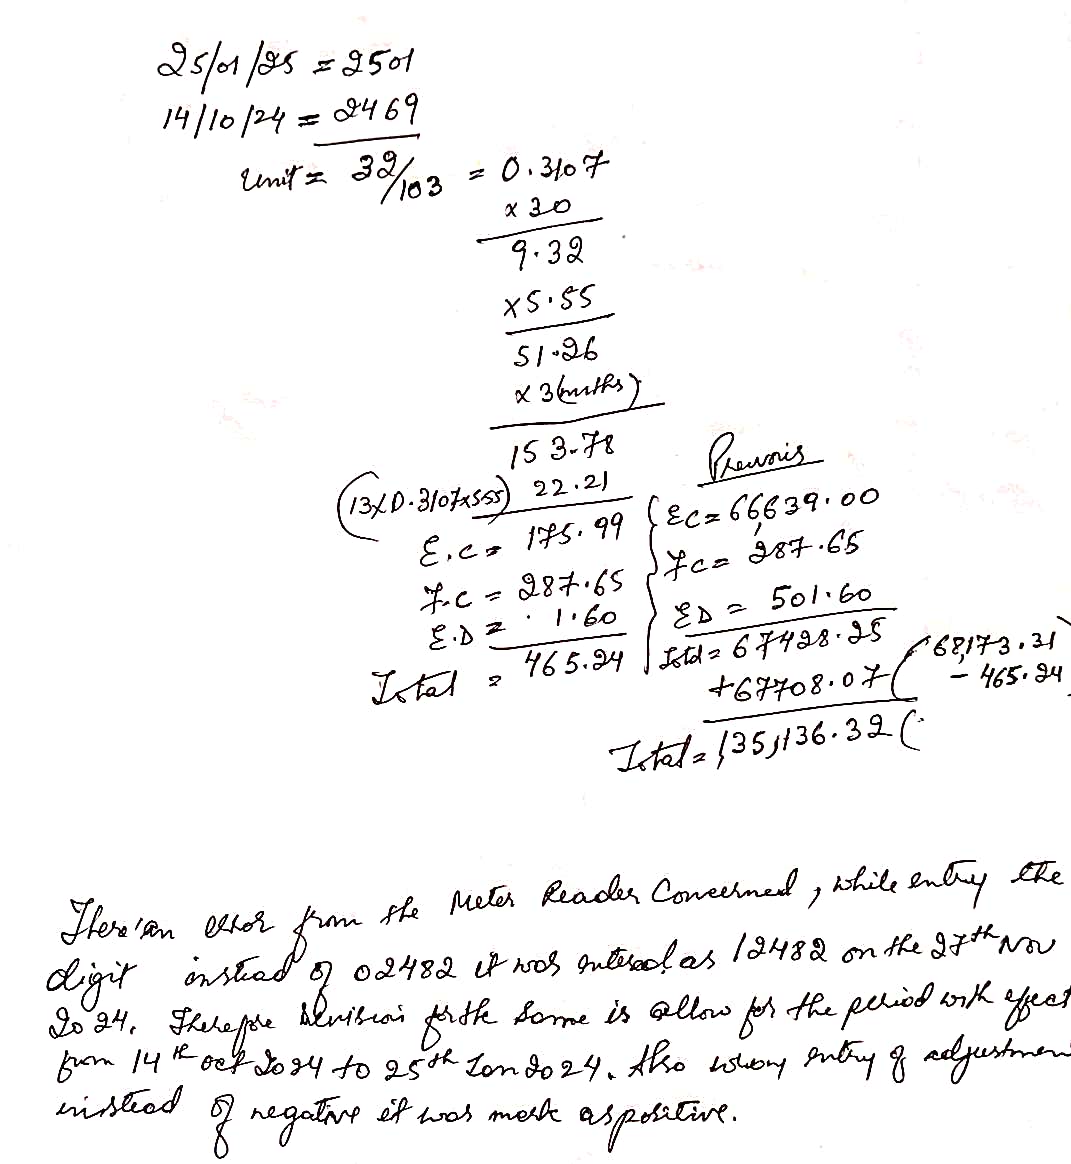 25/01/25 = 2501
14/10/24 = 2469
Unit = 32/103 = 0.3107
x 30
9.32
x 5.55
51.26
x 3(mths)
153.78
(13x0.3107x555) 22.21
E.C = 175.99
F.C = 287.65
E.D = 1.60
Total = 465.24
Previois
EC = 66,639.00
FC = 287.65
ED = 501.60
Total = 67428.25
+67708.07 ( 68,173.31
- 465.24
Total = 135,136.32 (
There'an error from the Meter Reader Concerned, while entry the
digit instead of 02482 it was entered as 12482 on the 27th Nov
2024. Therefore Revision forthe Same is allow for the period with effect
from 14th oct 2024 to 25th Jan 2024. Also wrong entry of adjustmen
instead of negative it was mark as positive.